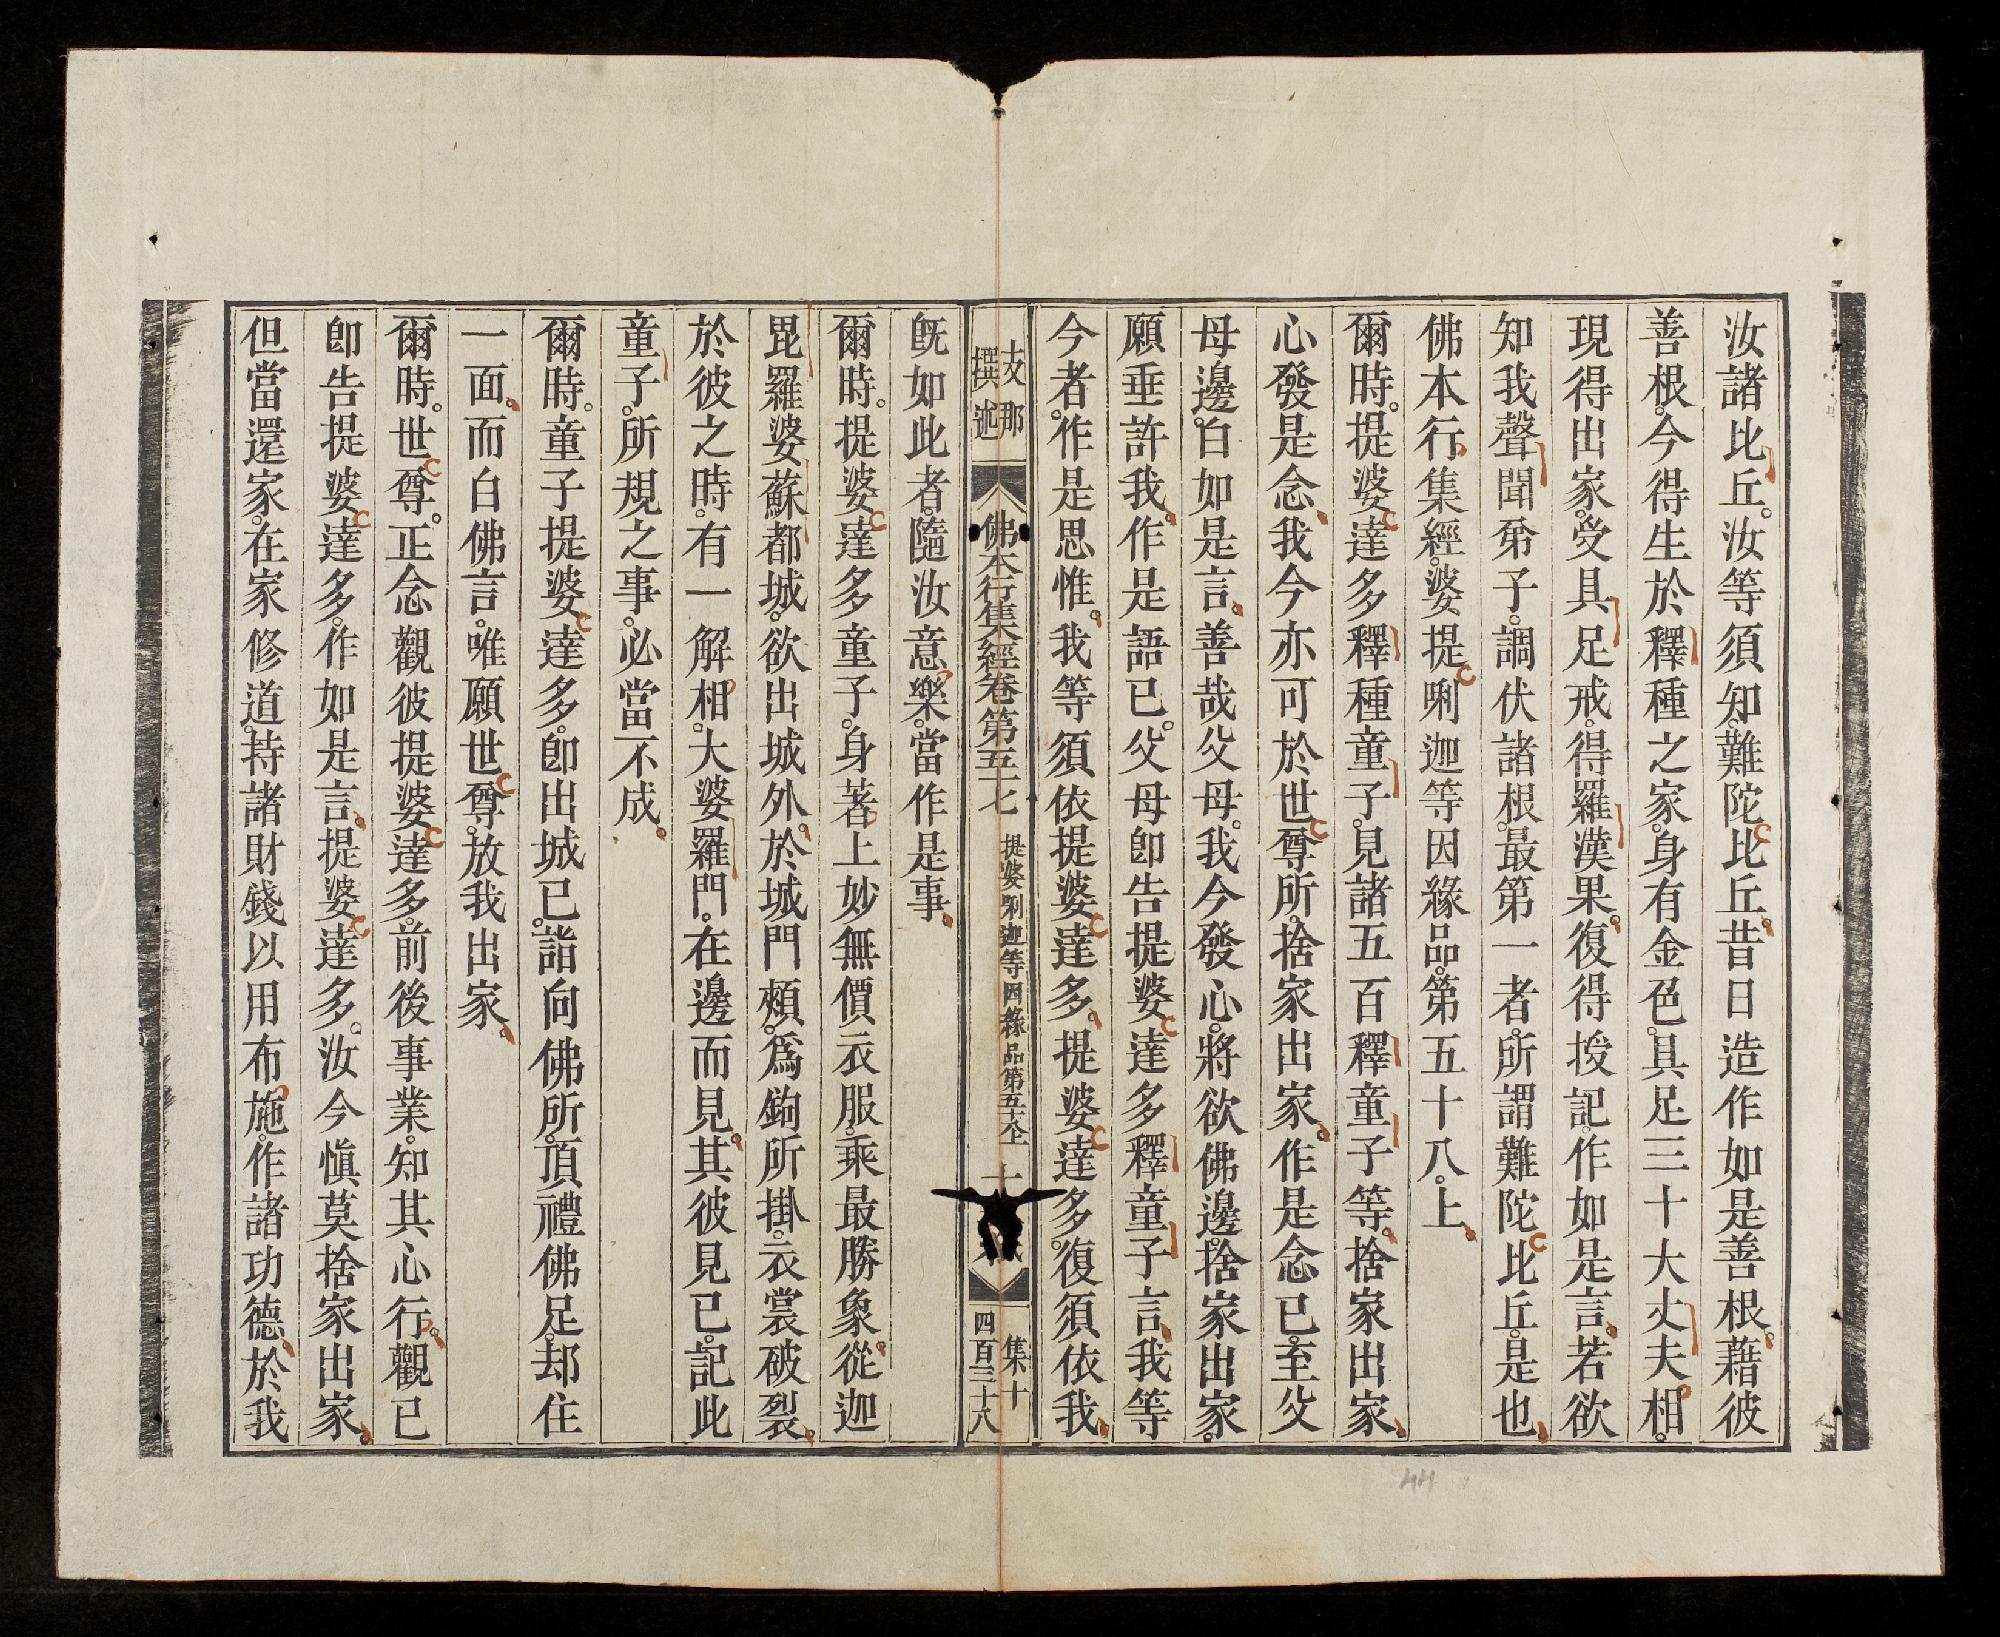 汝諸比丘。汝等須知。難陀比丘。昔日造作如是善根。藉彼
善根。今得生於釋種之家。身有金色。具足三十大丈夫相。
現得出家。受具足戒。得羅漢果。復得授記。作如是言。若欲
知我聲聞弟子。調伏諸根。最第一者。所謂難陀比丘。是也。
佛本行集經。婆提唎迦等因緣品。第五十八。上。
爾時。提婆達多釋種童子。見諸五百釋童子等。捨家出家。
心發是念。我今亦可於世尊所。捨家出家。作是念已。至父
母邊。白如是言。善哉父母。我今發心。將欲佛邊。捨家出家。
願垂許我。作是語已。父母卽告提婆達多釋童子言。我等
今者。作是思惟。我等須依提婆達多。提婆達多。復須依我。
支那
撰述
佛本行集經卷第五十七
提婆唎迦等因緣品第五十八上
集十
四百三十八
旣如此者。隨汝意樂。當作是事。
爾時。提婆達多童子。身著上妙無價衣服。乘最勝象。從迦
毘羅婆蘇都城。欲出城外。於城門頰。爲鉤所掛。衣裳破裂。
於彼之時。有一解相。大婆羅門。在邊而見。其彼見已。記此
童子。所規之事。必當不成。
爾時。童子提婆達多。卽出城已。詣向佛所。頂禮佛足。却住
一面。而白佛言。唯願世尊。放我出家。
爾時。世尊。正念觀彼提婆達多。前後事業。知其心行。觀已
卽告提婆達多。作如是言。提婆達多。汝今愼莫捨家出家。
但當還家。在家修道。持諸財錢以用布施。作諸功德。於我